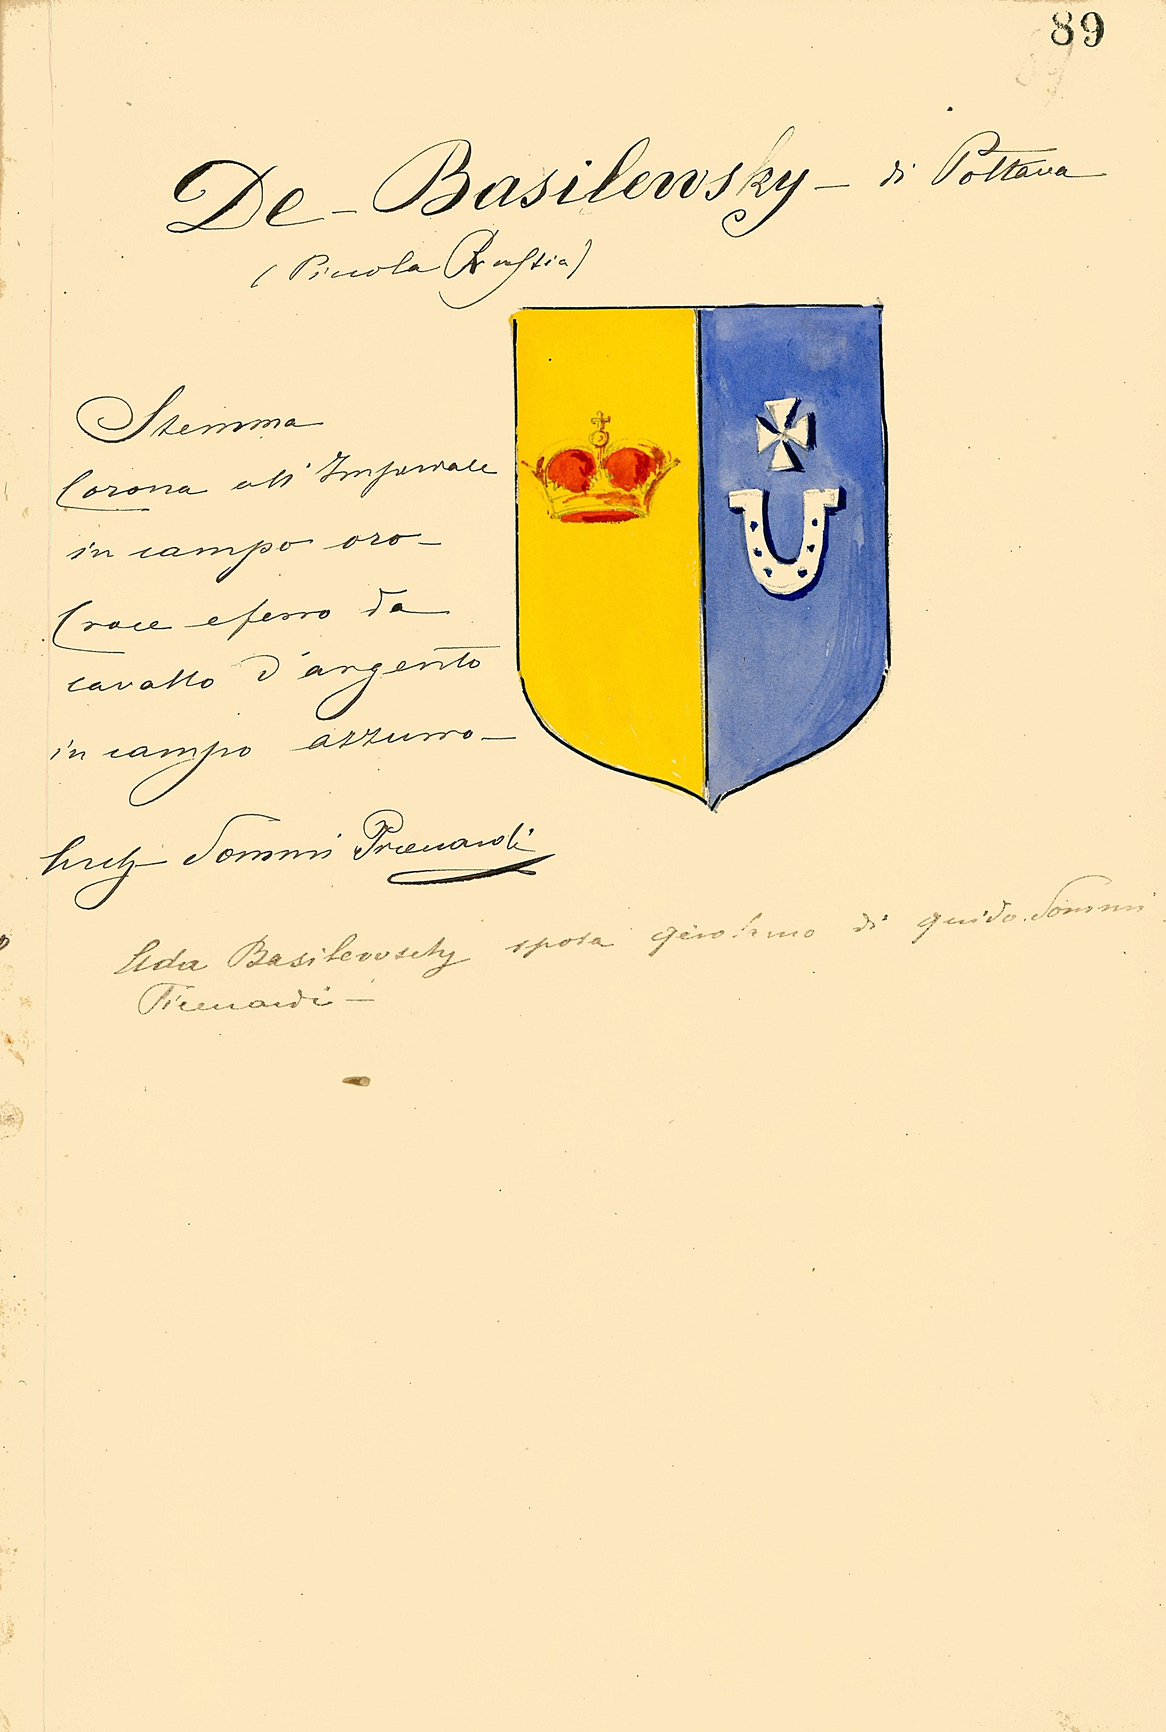 89
De-Basilewsky- di Poltava
(Piccola Russia)
Stemma
Corona all'Imperiale
in campo oro-
Croce e ferro da
cavallo d'argento
in campo azzurro-
Sommi Picenardi
Basilewsky sposa Gerolamo di Guido Sommi
Picenardi-